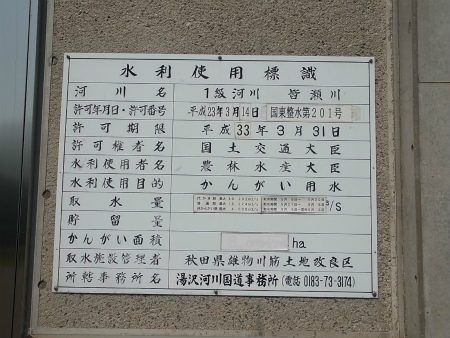 水利使用標識
河川名 1級河川 皆瀬川
許可年月日・許可番号 平成23年3月14日 国東整水第201号
許可期限 平成33年3月31日
許可権者名 国土交通大臣
水利使用者名 農林水産大臣
水利使用目的 かんがい用水
取水量 ㎥/S
貯留量
かんがい面積 ha
取水施設管理者 秋田県雄物川筋土地改良区
所轄事務所名 湯沢河川国道事務所(電話 0183-73-3174)